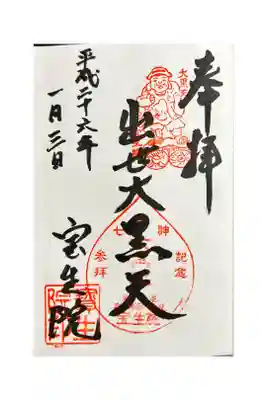 奉拝
大黒天
出世大黒天
七神
参拝
記念
宝生院
平成二十六年
一月三日